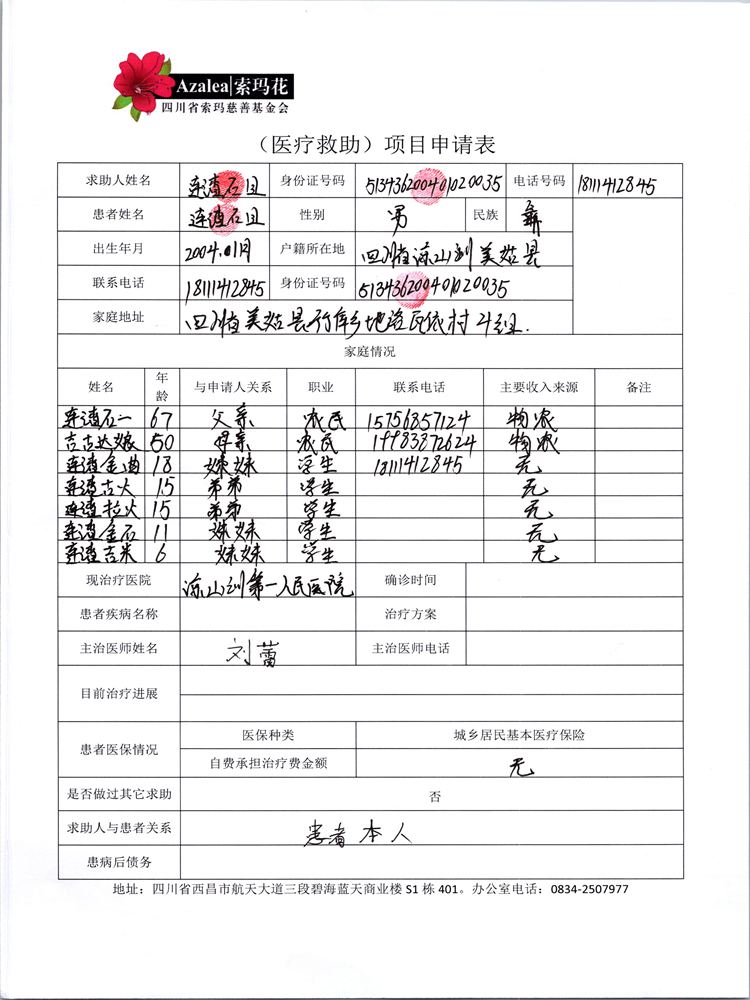 Azalea|索玛花
四川省索玛慈善基金会
（医疗救助）项目申请表
求助人姓名 连渣石且 身份证号码 513436200401020035 电话号码 18111412845
患者姓名 连渣石且 性别 男 民族 彝
出生年月 2004.01月 户籍所在地 四川省凉山州美姑县
联系电话 18111412845 身份证号码 513436200401020035
家庭地址 四川省美姑县 乡地洛瓦依村4组.
家庭情况
姓名 年龄 与申请人关系 职业 联系电话 主要收入来源 备注
连渣石一 67 父亲 农民 15756857124 务农
吉古达嫫 50 母亲 农民 19983872624 务农
连渣金曲 18 妹妹 学生 18111412845 无
连渣古火 15 弟弟 学生 无
连渣拉火 15 弟弟 学生 无
连渣金石 11 妹妹 学生 无
连渣吉米 6 妹妹 学生 无
现治疗医院 凉山州第一人民医院 确诊时间
患者疾病名称 治疗方案
主治医师姓名 刘蕾 主治医师电话
目前治疗进展
患者医保情况 医保种类 城乡居民基本医疗保险
自费承担治疗费金额 无
是否做过其它求助 否
求助人与患者关系 患者本人
患病后债务
地址：四川省西昌市航天大道三段碧海蓝天商业楼 S1 栋 401。办公室电话：0834-2507977